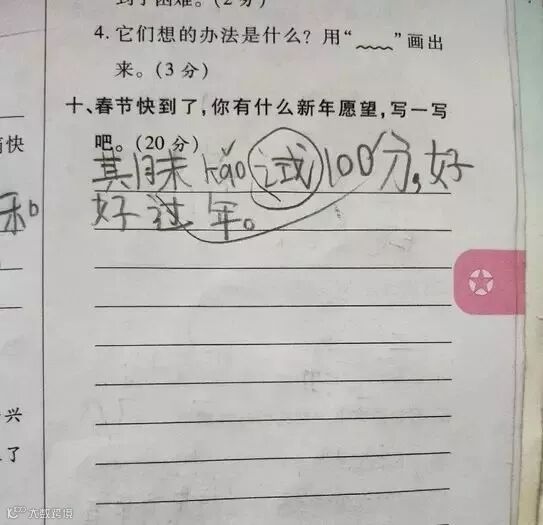 到了困难。(2分)
4.它们想的办法是什么？用“﹏﹏”画出
来。(3分)
十、春节快到了，你有什么新年愿望，写一写
吧。(20分)
其月末kǎo试100分，好
好过年。
快
禾。
兴
了
大数跨境